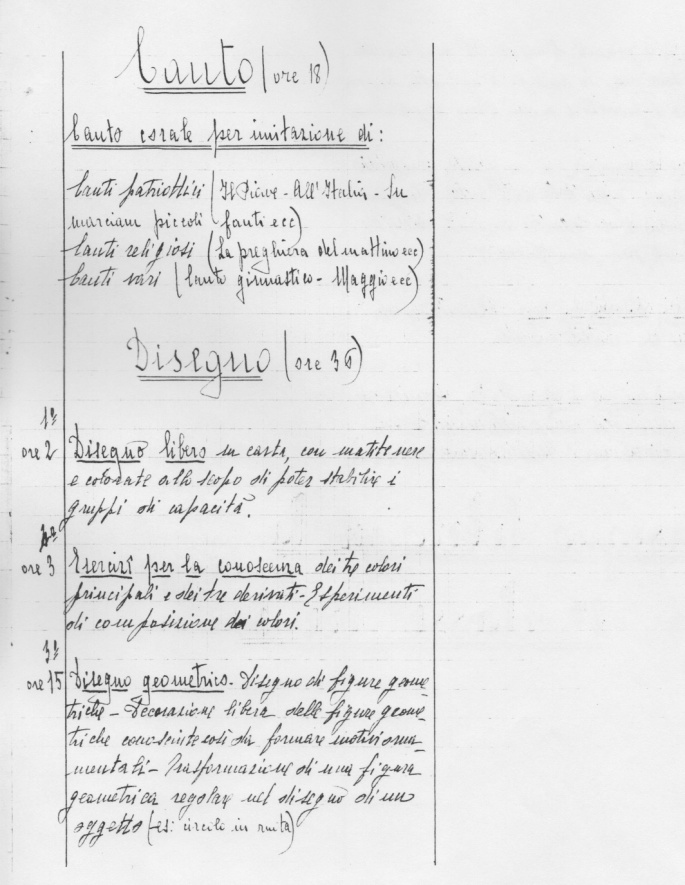 Canto (ore 18)
Canto corale per imitazione di:
Canti patriottici (Il Piave - All'Italia - Su
marciam piccoli fanti ecc)
Canti religiosi (La preghiera del mattino ecc)
Canti vari (Canto ginnastico - Maggio ecc)
Disegno (ore 36)
1º
ore 2 Disegno libero in carta, con matite nere
e colorate allo scopo di poter stabilire i
gruppi di capacità.
2º
ore 3 Esercizî per la conoscenza dei tre colori
principali e dei tre derivati - Esperimenti
di composizione dei colori.
3º
ore 15 Disegno geometrico - Disegno di figure geome
triche - Decorazione libera delle figure geome-
triche conosciute così da formare motivi orna-
mentali - Trasformazione di una figura
geometrica regolare nel disegno di un
oggetto (es: circolo in ruota)